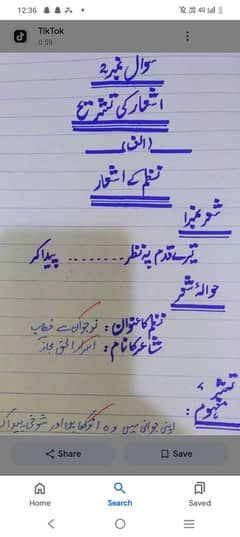 12:36
4G
71
TikTok
0:59
سوال نمبر 2
اشعار کی تشریح
(الف)
نظم کے اشعار
شعر نمبر 1
تیرے قدم پہ نظر ........ پیدا کر
حوالۂ شعر
نظم کا عنوان : نوجوان سے خطاب
شاعر کا نام : اسرار الحق مجاز
تشریح
مفہوم :
اپنی جوانی میں وہ اور شوخی پیدا کر
Share
Save
Home
Search
Saved